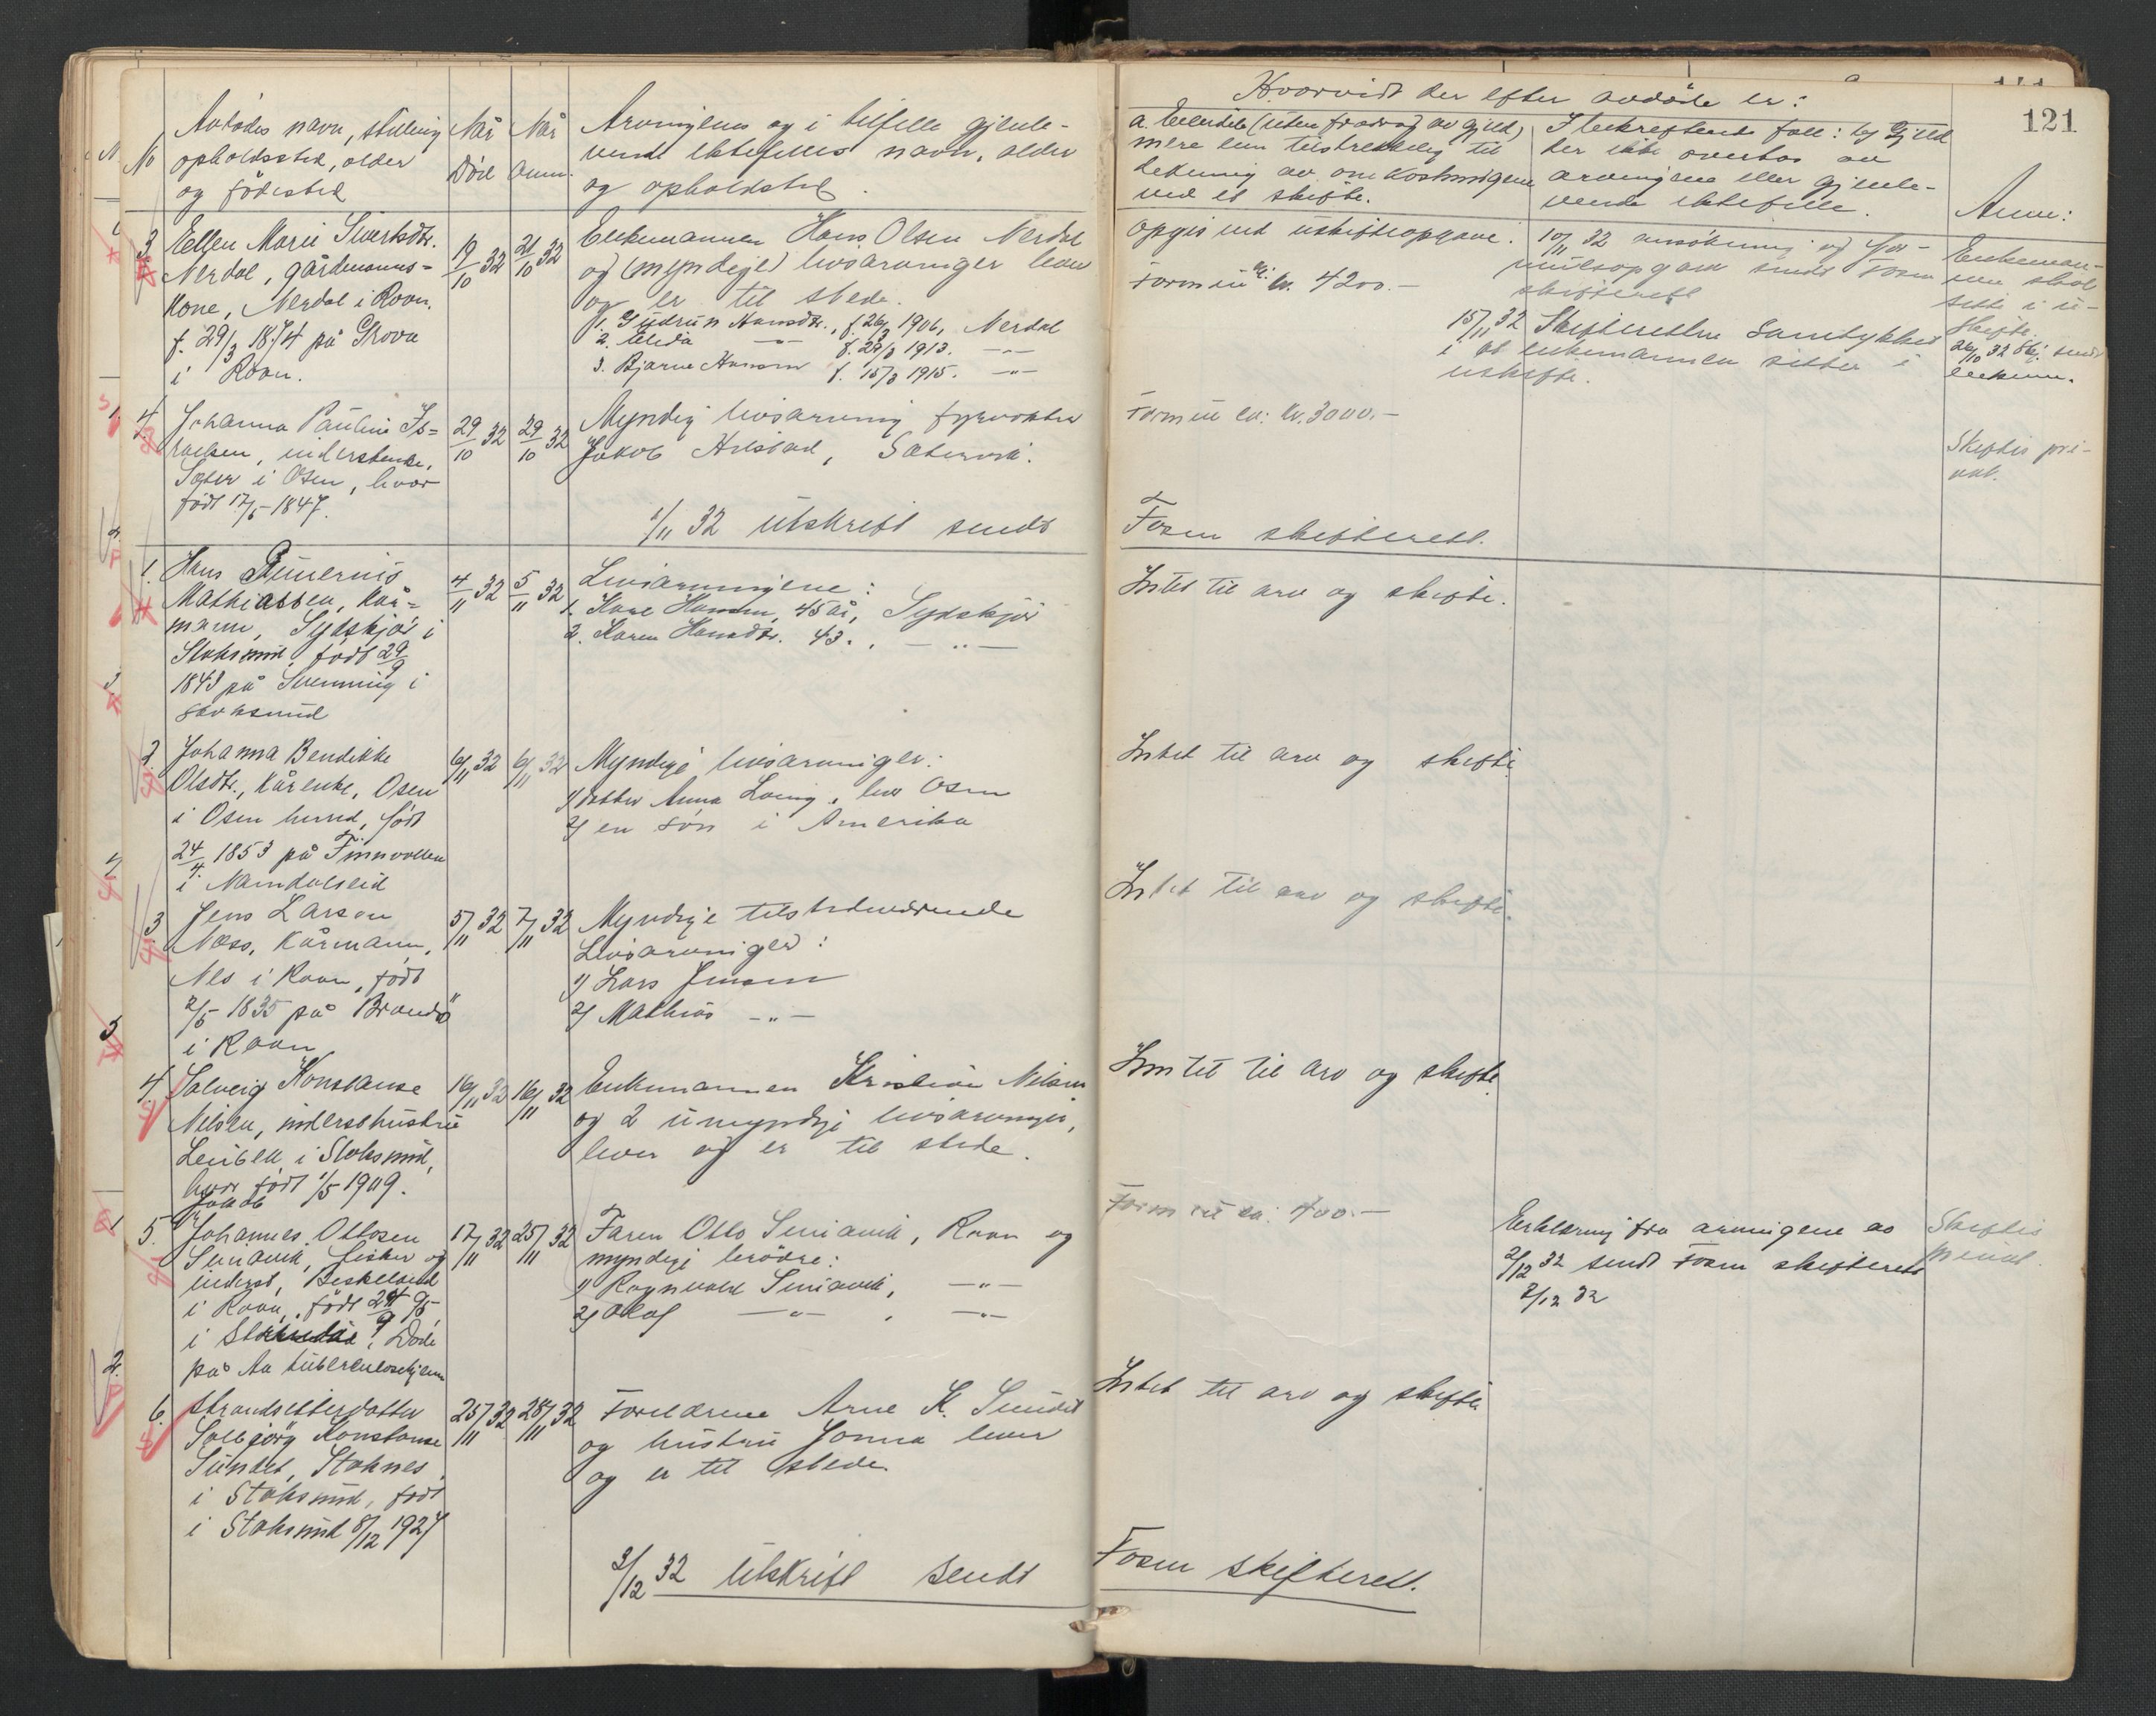 121
No
Avdødes navn, stilling
opholdssted, alder
og fødested
Når
Død
Når
Anm.
Arvingenes og i tilfelle gjenle-
vende ektefelles navn, alder
og opholdsted.
Hvorvidt der efter avdøde er:
a. Eiendele (uten fradrag av gjeld)
mere enn tilstrekkelig til
dekning av omkostningene
ved et skifte.
I bekreftende fall: b) Gjeld
der ikke overtas av
arvingene eller gjenle-
vende ektefelle.
Anm:
3.
Ellen Marie Sivertsdtr.
Nerdal, gårdmanns-
kone, Nerdal i Roan.
f. 29/3 1874 på Grova
i Roan.
19/10 32
21/10 32
Enkemannen Hans Olsen Nerdal
og (myndige) livsarvinger lever
og er til stede.
1. Gudrun Hansdtr., f. 26/3 1906, Nerdal
2. Alida -"- f. 29/3 1913. -"-
3. Bjarne Hansen f. 15/3 1915. -"-
Opgis ved uskifteopgave.
Formue kr. 4200.-
10/11 32 ansøkning og for-
muesopgave sendt Fosen
skifterett
15/11 32 Skifteretten samtykket
i at enkemannen sitter i
uskifte.
Enkeman-
nen skal
sitte i u-
skifte.
26/10 32 Skj. sendt
enkem.
4.
Johanna Pauline Is-
raelsen, inderstenke,
Sæter i Osen, hvor
født 17/5-1847.
29/10 32
29/10 32
Myndig livsarving fyrvokter
Jakob Hilstad, Sætervik.
Formue ca: kr. 3000.-
Skiftes pri-
vat.
1/11 32 utskrift sendt
Fosen skifterett.
1.
Hans Rimernis
Mathiassen, kår-
mann, Sydskjør i
Stoksund, født 29/9
1843 på Svenning i
Stoksund
4/11 32
5/11 32
Livsarvingene:
1. Kare Hansen, 45 år, Sydskjør
2. Karen Hansdtr. 43. , -"-
Intet til arv og skifte.
2.
Johanna Bendikke
Olsdtr., kårenke, Osen
i Osen herred, født
24/4 1853 på Finnvollen
i Namdalseid
6/11 32
6/11 32
Myndige livsarvinger:
1) datter Anna Loeng, her Osen
2) en søn i Amerika
Intet til arv og skifte
3
Jens Larsen
Næss, kårmann,
Nes i Roan, født
2/5 1835 på Brandsø
i Roan
5/11 32
7/11 32
Myndige tilstedeværende
Livsarvinger:
1) Lars Jensen
2) Mathias -"-
Intet til arv og skifte.
4.
Solveig Konstanse
Nilsen, indersthustru
Leiblk i Stoksund,
hvor født 1/5 1909.
16/11 32
16/11 32
Enkemannen Kristian Nilsen
og 2 umyndige livsarvinger,
lever og er til stede.
Inntet til arv og skifte.
5.
Jakob
Johannes Ottosen
Sumavik, fisker og
inderst, Beskeland
i Roan, født 24/9 95
i
? Døde
på Aa tuberkulosehjem
17/11 32
25/11 32
Faren Otto Sumavik, Roan og
myndige brødre:
1) Ragnvald Sumavik, -"-
2) Olaf -"- , -"-
Formue ca: 400.-
Erklæring fra arvingene av
2/12 32 sendt Fosen skifterett
2/12 32
Skiftes
privat.
6.
Strandsitterdatter
Solbjørg Konstanse
Sundet, Stoknes
i Stoksund, født
i Stoksund 8/12 1927
25/11 32
28/11 32
Foreldrene Arne K. Sundet
og hustru Jonna lever
og er til stede
Intet til arv og skifte
3/12 32 utskrift sendt
Fosen skifterett.